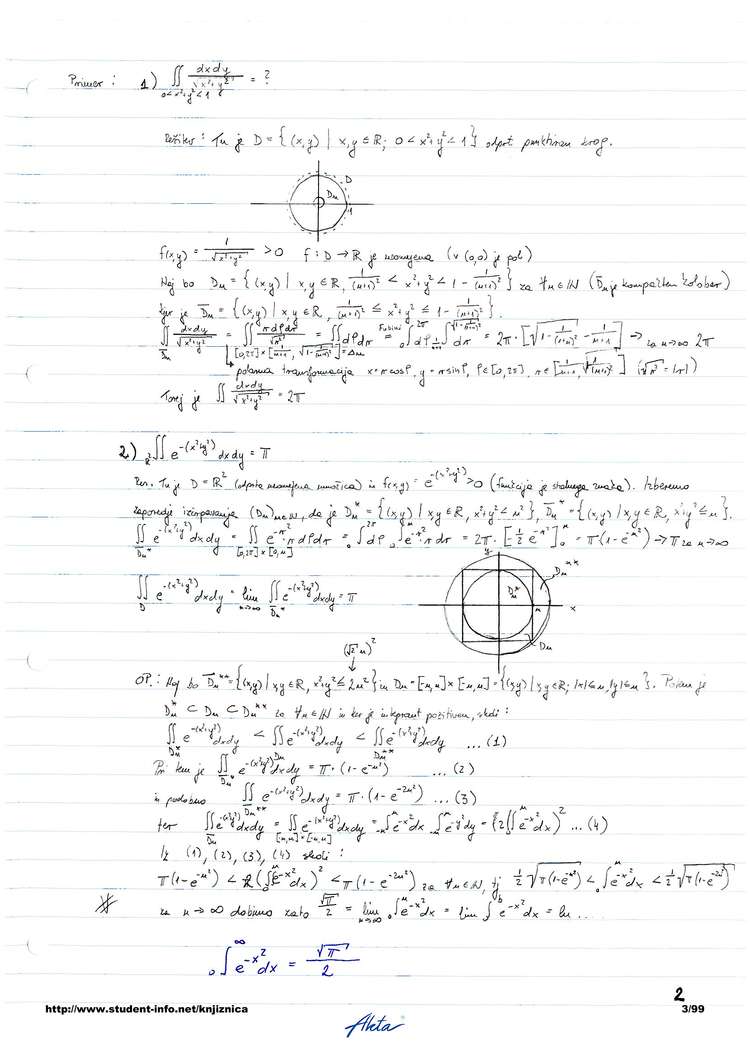 Primer : 1) ∬ dxdy/√(x²+y²) = ?
0<x²+y²<1
Rešitev : Tu je D = {(x,y) | x,y ∈ ℝ; 0 < x²+y² < 1} odprt punktiran krog.
D
Dn
1
f(x,y) = 1/√(x²+y²) > 0 f : D → ℝ je neomejena (v (0,0) je pol)
Naj bo Dn = {(x,y) | x,y ∈ ℝ, 1/(n+1)² < x²+y² < 1 - 1/(n+1)²} za ∀n∈ℕ (D̄n je kompakten
kjer je D̄n = {(x,y) | x,y ∈ ℝ, 1/(n+1)² ≤ x²+y² ≤ 1 - 1/(n+1)²}.
∬ dxdy/√(x²+y²) = ∬ r dφ dr/√r² = ∬ dφ dr = Fubini ∫ dφ ∫ dr = 2π · [√(1 - 1/(n+1)²) - 1/(n+1)] → za n→∞ 2π
polarna transformacija x = r cos φ, y = r sin φ, φ ∈ [0,2π], r ∈ [1/(n+1), √(1 - 1/(n+1)²)] (√r² = |r|)
Torej je ∬ dxdy/√(x²+y²) = 2π
2) ∬ e^-(x²+y²) dxdy = π
ℝ²
Reš. Tu je D = ℝ² (odprta neomejena množica) in f(x,y) = e^-(x²+y²) > 0 (funkcija je stalnega znaka). Izberemo
zaporedje izčrpavanja (Dn)n∈ℕ, da je Dn* = {(x,y) | x,y ∈ ℝ, x²+y² < n²}, D̄n* = {(x,y) | x,y ∈ ℝ, x²+y² ≤ n}.
∬ e^-(x²+y²) dxdy = ∬ e^-r² · r dφ dr = ∫ dφ ∫ e^-r² r dr = 2π · [-½ e^-r²] = π(1 - e^-n²) → π za n→∞
y
Dn**
∬ e^-(x²+y²) dxdy = lim ∬ e^-(x²+y²) dxdy = π
Dn*
n
x
Dn
(√2 n)²
OP.: Naj bo D̄n** = {(x,y) | x,y ∈ ℝ, x²+y² ≤ 2n²} in Dn = [-n,n] × [-n,n] = {(x,y) | x,y ∈ ℝ; |x| ≤ n, |y| ≤ n}. Potem je
Dn* ⊂ Dn ⊂ Dn** za ∀n∈ℕ in ker je integrant pozitiven, sledi :
∬ e^-(x²+y²) dxdy < ∬ e^-(x²+y²) dxdy < ∬ e^-(x²+y²) dxdy ... (1)
Pri tem je ∬ e^-(x²+y²) dxdy = π · (1 - e^-n²) ... (2)
in podobno ∬ e^-(x²+y²) dxdy = π · (1 - e^-2n²) ... (3)
ter ∬ e^-(x²+y²) dxdy = ∬ e^-(x²+y²) dxdy = ∫ e^-x² dx ∫ e^-y² dy = {2 ∫ e^-x² dx}² ... (4)
Iz (1), (2), (3), (4) sledi :
π(1 - e^-n²) < (∫ e^-x² dx)² < π(1 - e^-2n²) za ∀n∈ℕ, tj ½ √(π(1 - e^-n²)) < ∫ e^-x² dx < ½ √(π(1 - e^-2n²))
za n→∞ dobimo zato √π/2 = lim ∫ e^-x² dx = lim ∫ e^-x² dx = ...
₀∫^∞ e^-x² dx = √π/2
2
http://www.student-info.net/knjiznica 3/99
Akta